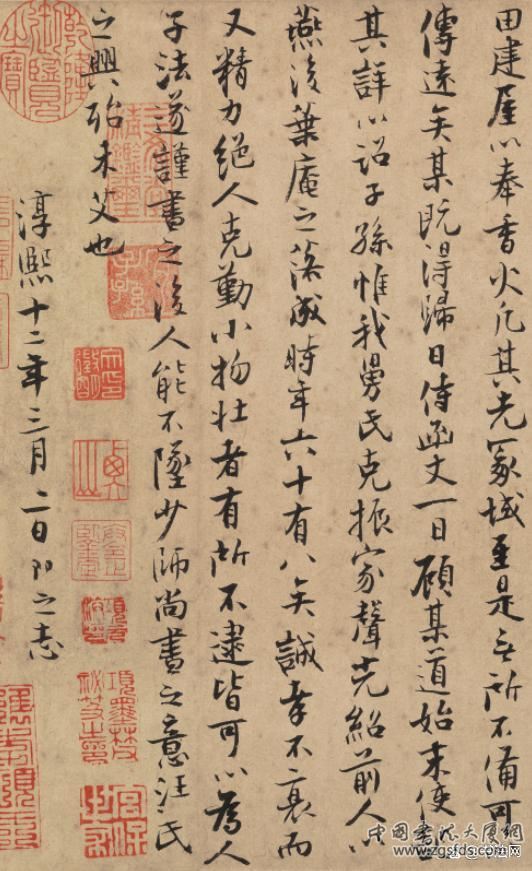 田建屋以奉香火凡其先冢域至是无所不備可
傳遠矣某既得歸日侍函丈一日顧某道始末使
其詳以詔子孫惟我舅氏克振家聲光紹前人以
燕後葉庵之落成時年六十有八矣誠幸不衰而
又精力絕人克勤小物壯者有所不逮皆可以為人
子法遂謹書之後人能不墜少師尚書之意汪氏
之興殆未艾也
淳熙十二年三月二日即之志
乾隆御覽之寶
中國書法大廈網
www.zgsfds.com